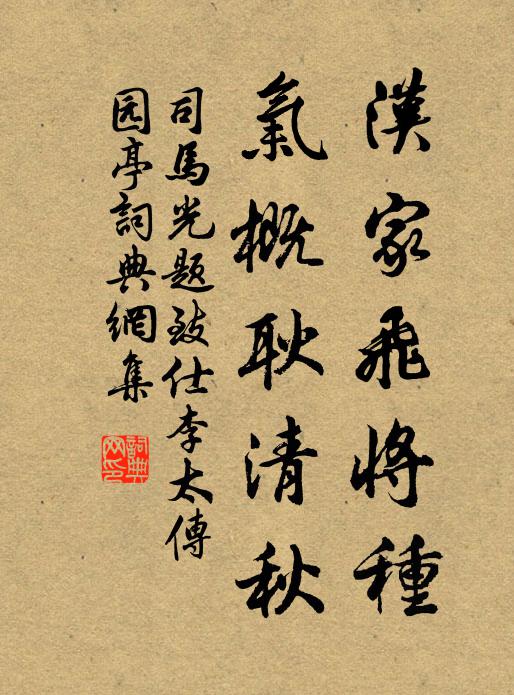 漢家飛將種
氣概耿清秋
司馬光題致仕李太傅
园亭詞典網集
詞典网印